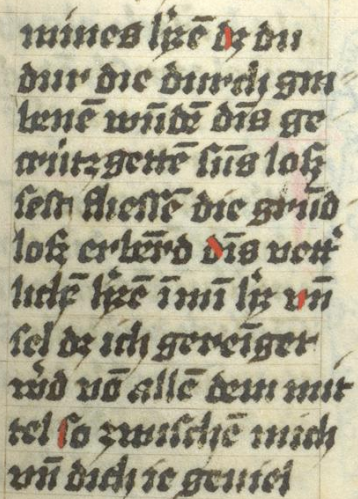 mines h̾zē dz du
dur die durch gra
benē wūdē dīs ge
crützgettē sūs losz
sest fliessē die grūd
losz erbērd dīs vett
lichē h̾zē ī mī h̾z vn̄
sel dz ich gereīget
wd vō allē dem mit
tel so zwischē mich
vn̄ dich ie geuiel